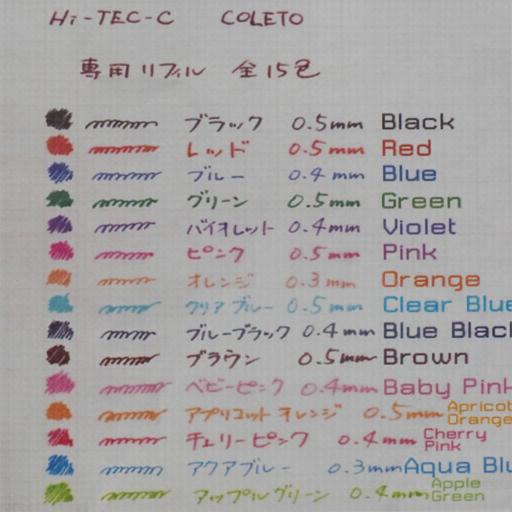 Hi-TEC-C COLETO
専用リフィル 全15色
ブラック 0.5mm Black
レッド 0.5mm Red
ブルー 0.4mm Blue
グリーン 0.5mm Green
バイオレット 0.4mm Violet
ピンク 0.5mm Pink
オレンジ 0.3mm Orange
クリアブルー 0.5mm Clear Blue
ブルーブラック 0.4mm Blue Blac
ブラウン 0.5mm Brown
ベビーピンク 0.4mm Baby Pink
アプリコットオレンジ 0.5mm Apricot Orange
チェリーピンク 0.4mm Cherry Pink
アクアブルー 0.3mm Aqua Blu
アップルグリーン 0.4mm Apple Green